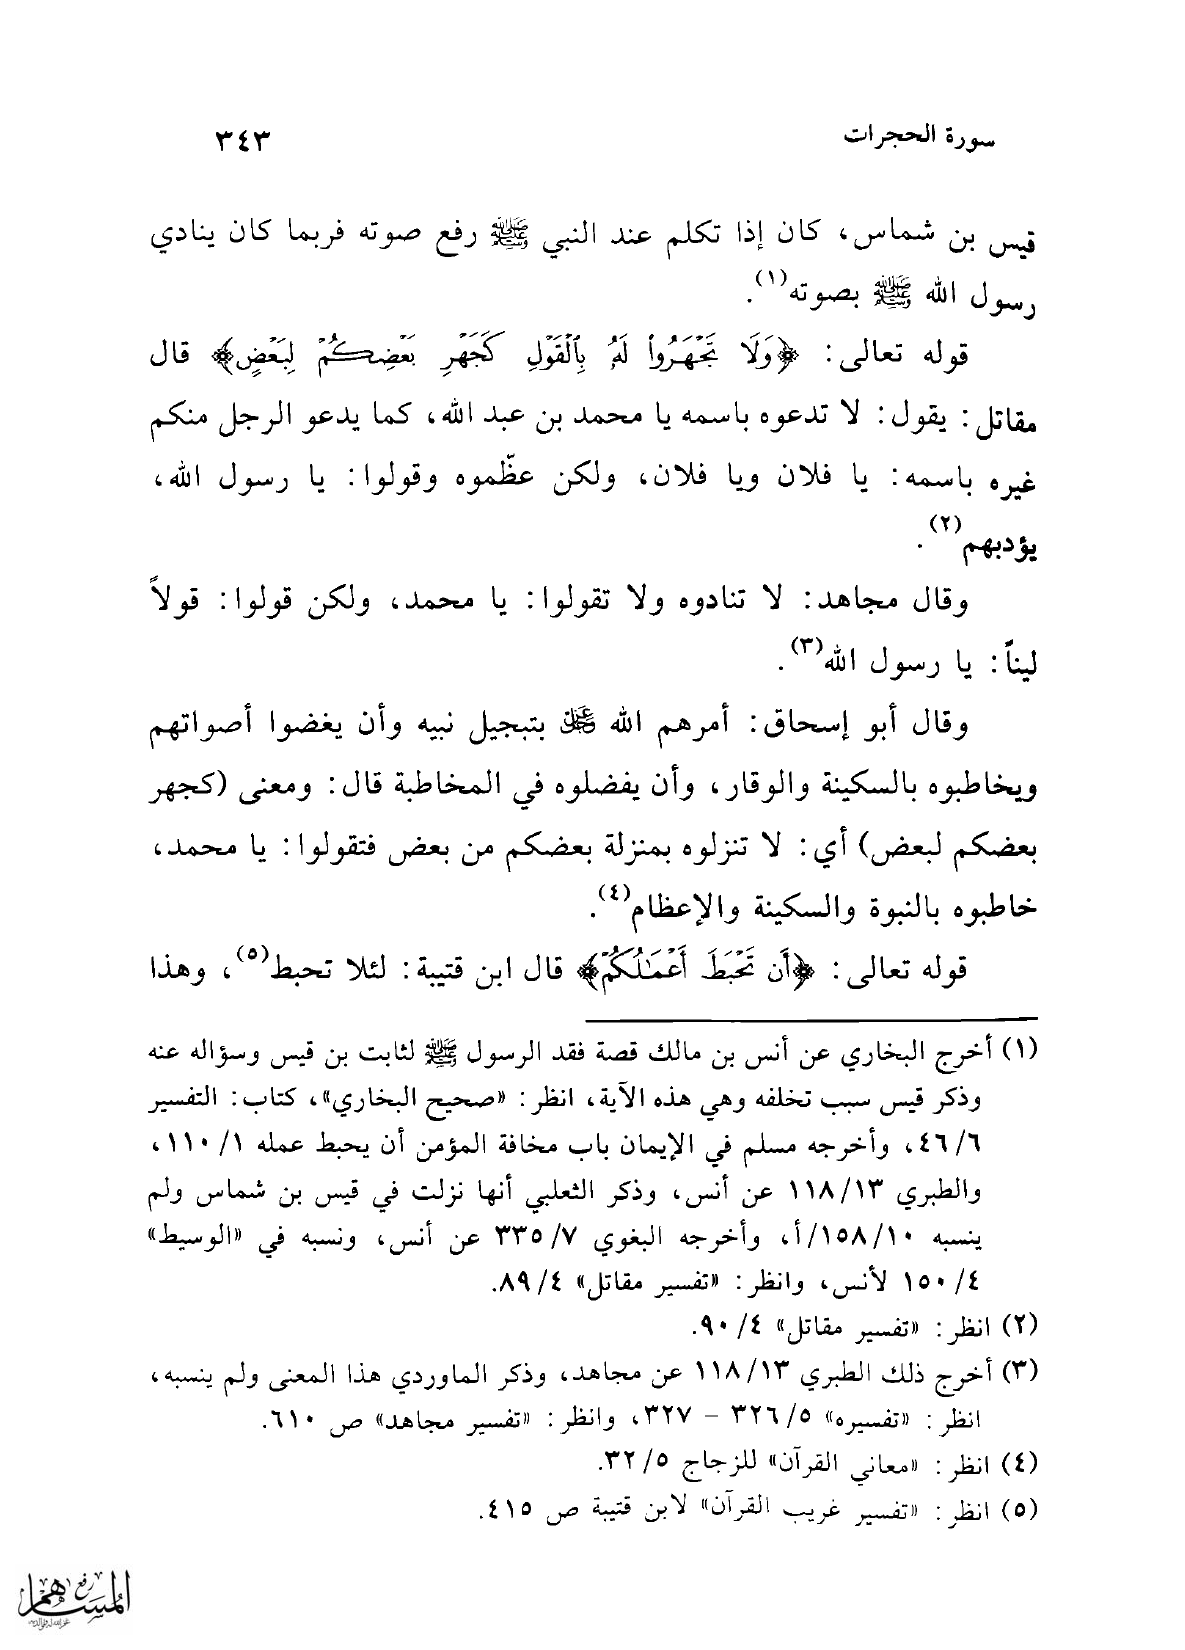 سورة الحجرات ٣٤٣
قيس بن شماس، كان إذا تكلم عند النبي ﷺ رفع صوته فربما كان ينادي
رسول الله ﷺ بصوته(١).
قوله تعالى: ﴿وَلَا تَجْهَرُوا لَهُ بِالْقَوْلِ كَجَهْرِ بَعْضِكُمْ لِبَعْضٍ﴾ قال
مقاتل: يقول: لا تدعوه باسمه يا محمد بن عبد الله، كما يدعو الرجل منكم
غيره باسمه: يا فلان ويا فلان، ولكن عظّموه وقولوا: يا رسول الله،
يؤدبهم(٢).
وقال مجاهد: لا تنادوه ولا تقولوا: يا محمد، ولكن قولوا: قولاً
ليناً: يا رسول الله(٣).
وقال أبو إسحاق: أمرهم الله عز وجل بتبجيل نبيه وأن يغضوا أصواتهم
ويخاطبوه بالسكينة والوقار، وأن يفضلوه في المخاطبة قال: ومعنى (كجهر
بعضكم لبعض) أي: لا تنزلوه بمنزلة بعضكم من بعض فتقولوا: يا محمد،
خاطبوه بالنبوة والسكينة والإعظام(٤).
قوله تعالى: ﴿أَن تَحْبَطَ أَعْمَٰلُكُمْ﴾ قال ابن قتيبة: لئلا تحبط(٥)، وهذا
(١) أخرج البخاري عن أنس بن مالك قصة فقد الرسول ﷺ لثابت بن قيس وسؤاله عنه
وذكر قيس سبب تخلفه وهي هذه الآية، انظر: «صحيح البخاري»، كتاب: التفسير
٤٦/٦، وأخرجه مسلم في الإيمان باب مخافة المؤمن أن يحبط عمله ١١٠/١،
والطبري ١١٨/١٣ عن أنس، وذكر الثعلبي أنها نزلت في قيس بن شماس ولم
ينسبه ١٥٨/١٠/أ، وأخرجه البغوي ٣٣٥/٧ عن أنس، ونسبه في «الوسيط»
١٥٠/٤ لأنس، وانظر: «تفسير مقاتل» ٨٩/٤.
(٢) انظر: «تفسير مقاتل» ٩٠/٤.
(٣) أخرج ذلك الطبري ١١٨/١٣ عن مجاهد، وذكر الماوردي هذا المعنى ولم ينسبه،
انظر: «تفسيره» ٣٢٦/٥ - ٣٢٧، وانظر: «تفسير مجاهد» ص ٦١٠.
(٤) انظر: «معاني القرآن» للزجاج ٣٢/٥.
(٥) انظر: «تفسير غريب القرآن» لابن قتيبة ص ٤١٥.
رفع
المساهم